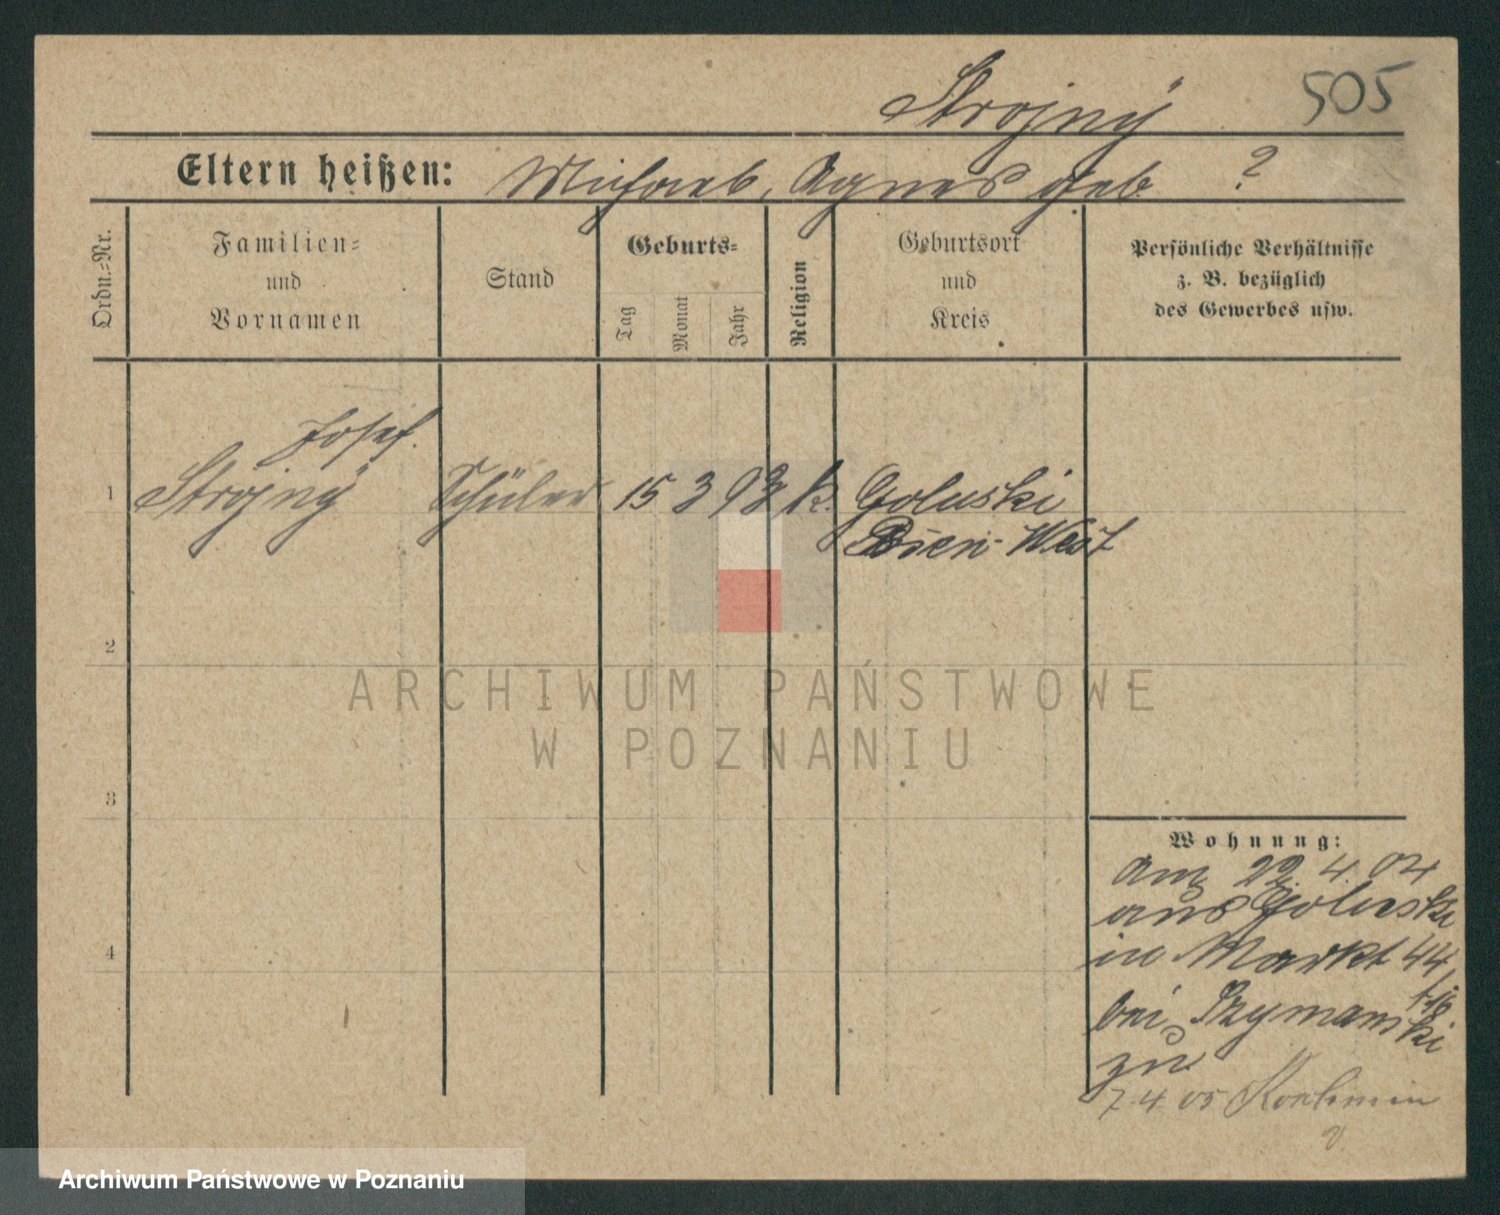 Strojny 505
Eltern heißen: Michael, Agnes geb. ?
Ordn.-Nr.
Familien-
und
Vornamen
Stand
Geburts-
Tag
Monat
Jahr
Religion
Geburtsort
und
Kreis
Persönliche Verhältnisse
z. B. bezüglich
des Gewerbes usw.
Josef.
1 Strojny Schüler 15 3 93 k. Goluski
Posen-West
2
3
4
Wohnung:
am 22.4.04
aus Goluski
in Markt 44
bei Szymanski
zu
7.4.05 Koschmin
ARCHIWUM PAŃSTWOWE
W POZNANIU
Archiwum Państwowe w Poznaniu